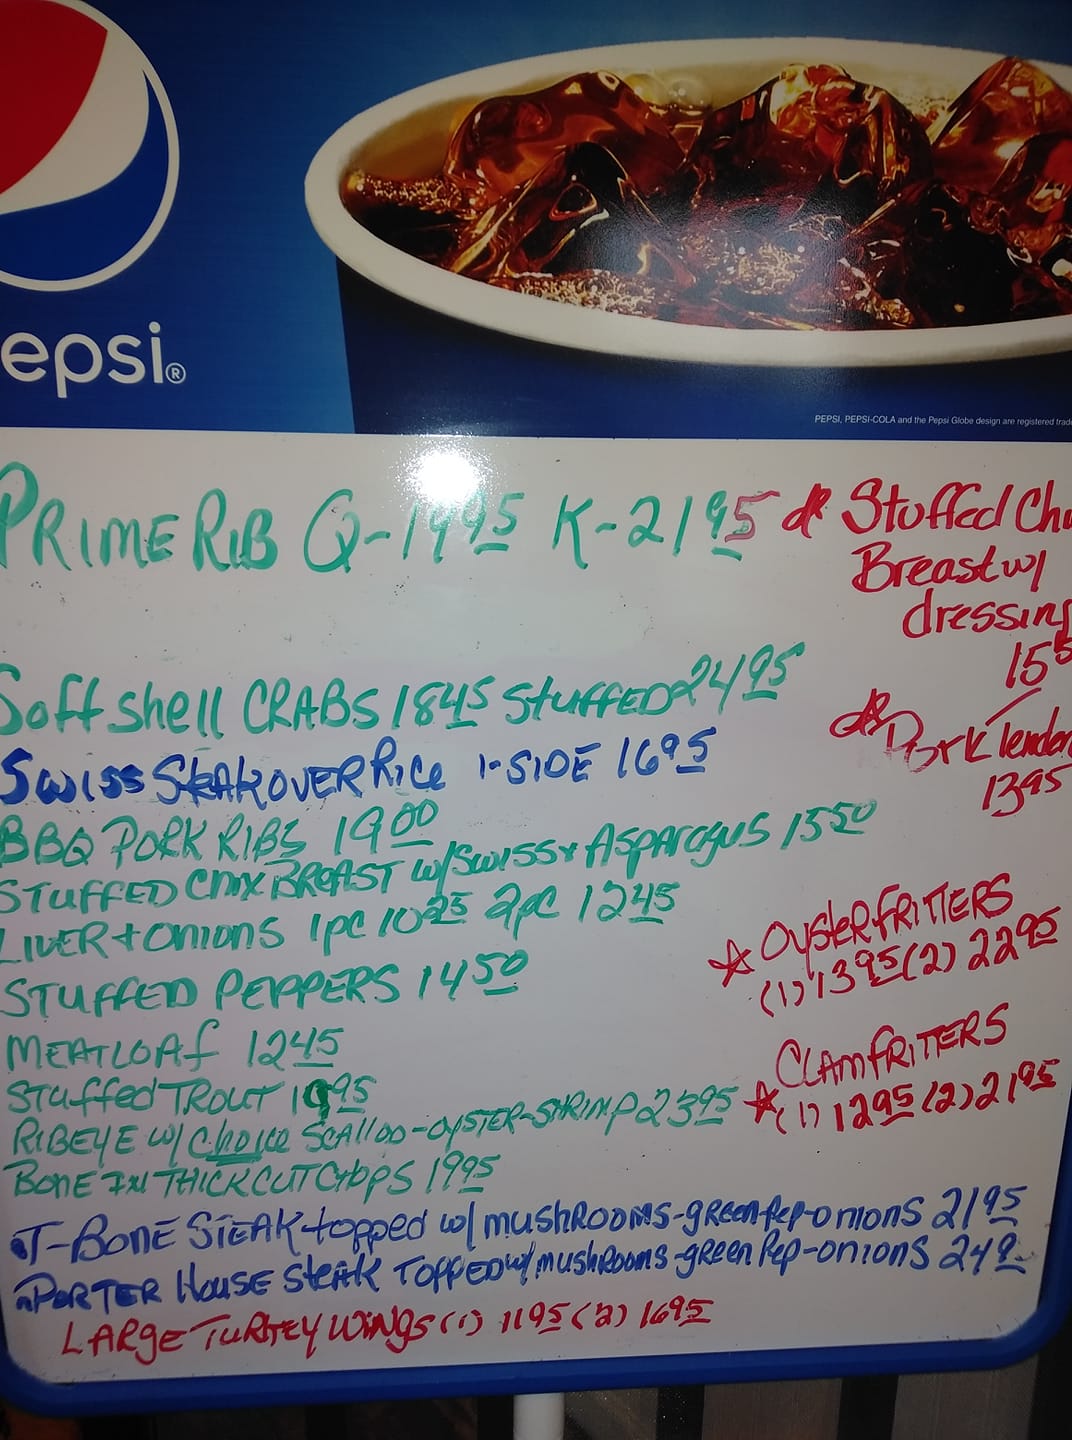 epsi®
PEPSI, PEPSI-COLA and the Pepsi Globe design are registered trad
PRIME RIB Q-19 95 K-21 95
Stuffed Chi
Breast w/
dressing
15 5
Soft shell CRABS 18 45 STUFFED 24 95
Pork Tender
13 95
SWISS STEAK OVER RICE 1-SIDE 16 95
BBQ PORK RIBS 19 00
STUFFED CHIX BREAST w/SWISS + ASPARAGUS 15 50
LIVER + ONIONS 1PC 10 25 2PC 12 45
STUFFED PEPPERS 14 50
OYSTER FRITTERS
(1) 13 95 (2) 22 95
MEATLOAF 12 45
Stuffed TROUT 19 95
CLAM FRITTERS
(1) 12 95 (2) 21 95
RIBEYE w/ Choice SCALLOP-OYSTER-SHRIMP 23 95
BONE IN THICK CUT CHOPS 19 95
T-BONE STEAK topped w/ mushROOMS-green Pep-onions 21 95
PORTER HOUSE STEAK TOPPED w/ mushROOMS-green Pep-onions 24 9
LARGE TURKEY WINGS (1) 11 95 (2) 16 95